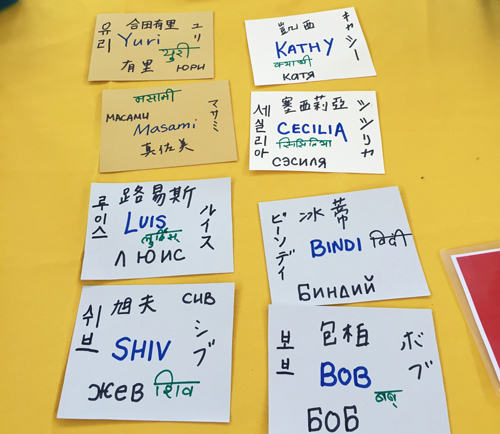 유리
合田有里
ユリ
Yuri
युरी
有里
ЮРИ
凱西
キャシー
KATHY
क्याथी
КАТЯ
मसामी
マサミ
МАСАМИ
Masami
真佐美
세실리아
塞西莉亞
CECILIA
СЭСИЛЯ
루이스
路易斯
ルイス
LUIS
ЛЮИС
ビーンディ
冰蒂
BINDI
बिंदी
БИНДИЙ
쉬브
旭夫
СИВ
シブ
SHIV
ЖЕВ
शिव
보브
包柏
ボブ
BOB
БОБ